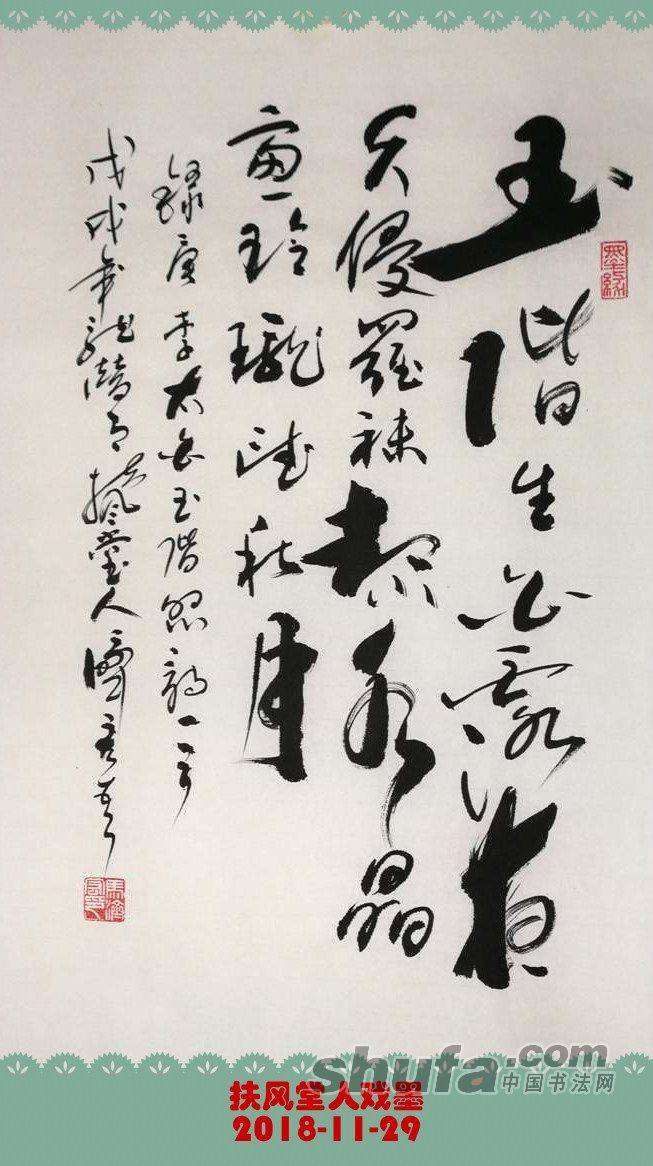 玉階生白露夜
久侵羅袜却下水晶
簾玲瓏望秋月
錄唐李太白玉階怨詩一首
戊戌年 堂人
shufa.com
中国书法网
扶风堂人戏墨
2018-11-29